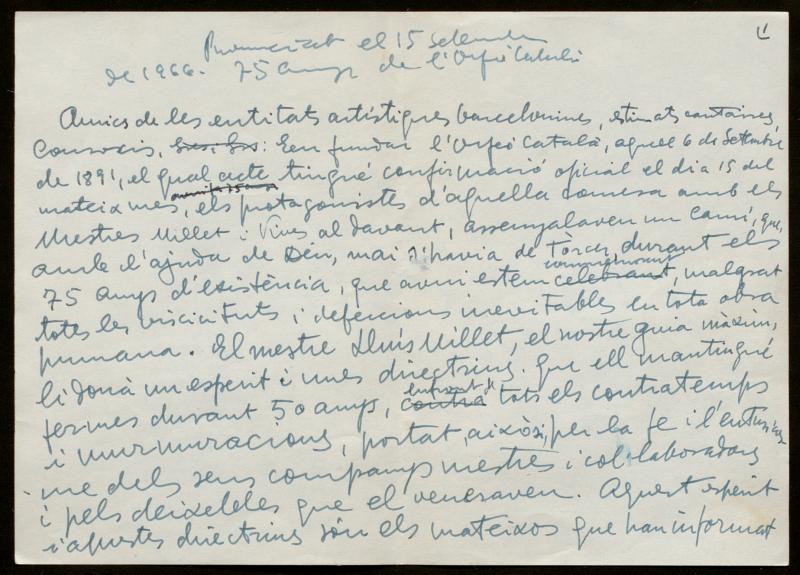 Pronunciat el 15 Setembre
de 1966. 75 anys de l'Orfeó Català
Amics de les entitats artístiques barcelonines, estimats cantaires,
Consocis, En fundar l'Orfeó Català, aquel 6 de Setembre
de 1891, el qual acte tingué confirmació oficial el dia 15 del
mateix mes, els protagonistes d'aquella comesa amb els
Mestres Millet i Vives al davant, assenyalaven un camí, que,
amb l'ajuda de Déu, mai s'havia de tòrcer, durant els
75 anys d'existència, que avui estem commemorant celebrant, malgrat
totes les viscicituts i defeccions inevitables en tota obra
humana. El mestre Lluís Millet, el nostre guia màxim,
li donà un esperit i unes directrius. que ell mantingué
fermes durant 50 anys, contra tots els contratemps
i murmuracions, portat, això sí, per la fe i l'entusias-
me dels seus companys mestres i col·laboradors
i pels deixebles que el veneraven. Aquest esperit
i aquestes directrius són els mateixos que han informat